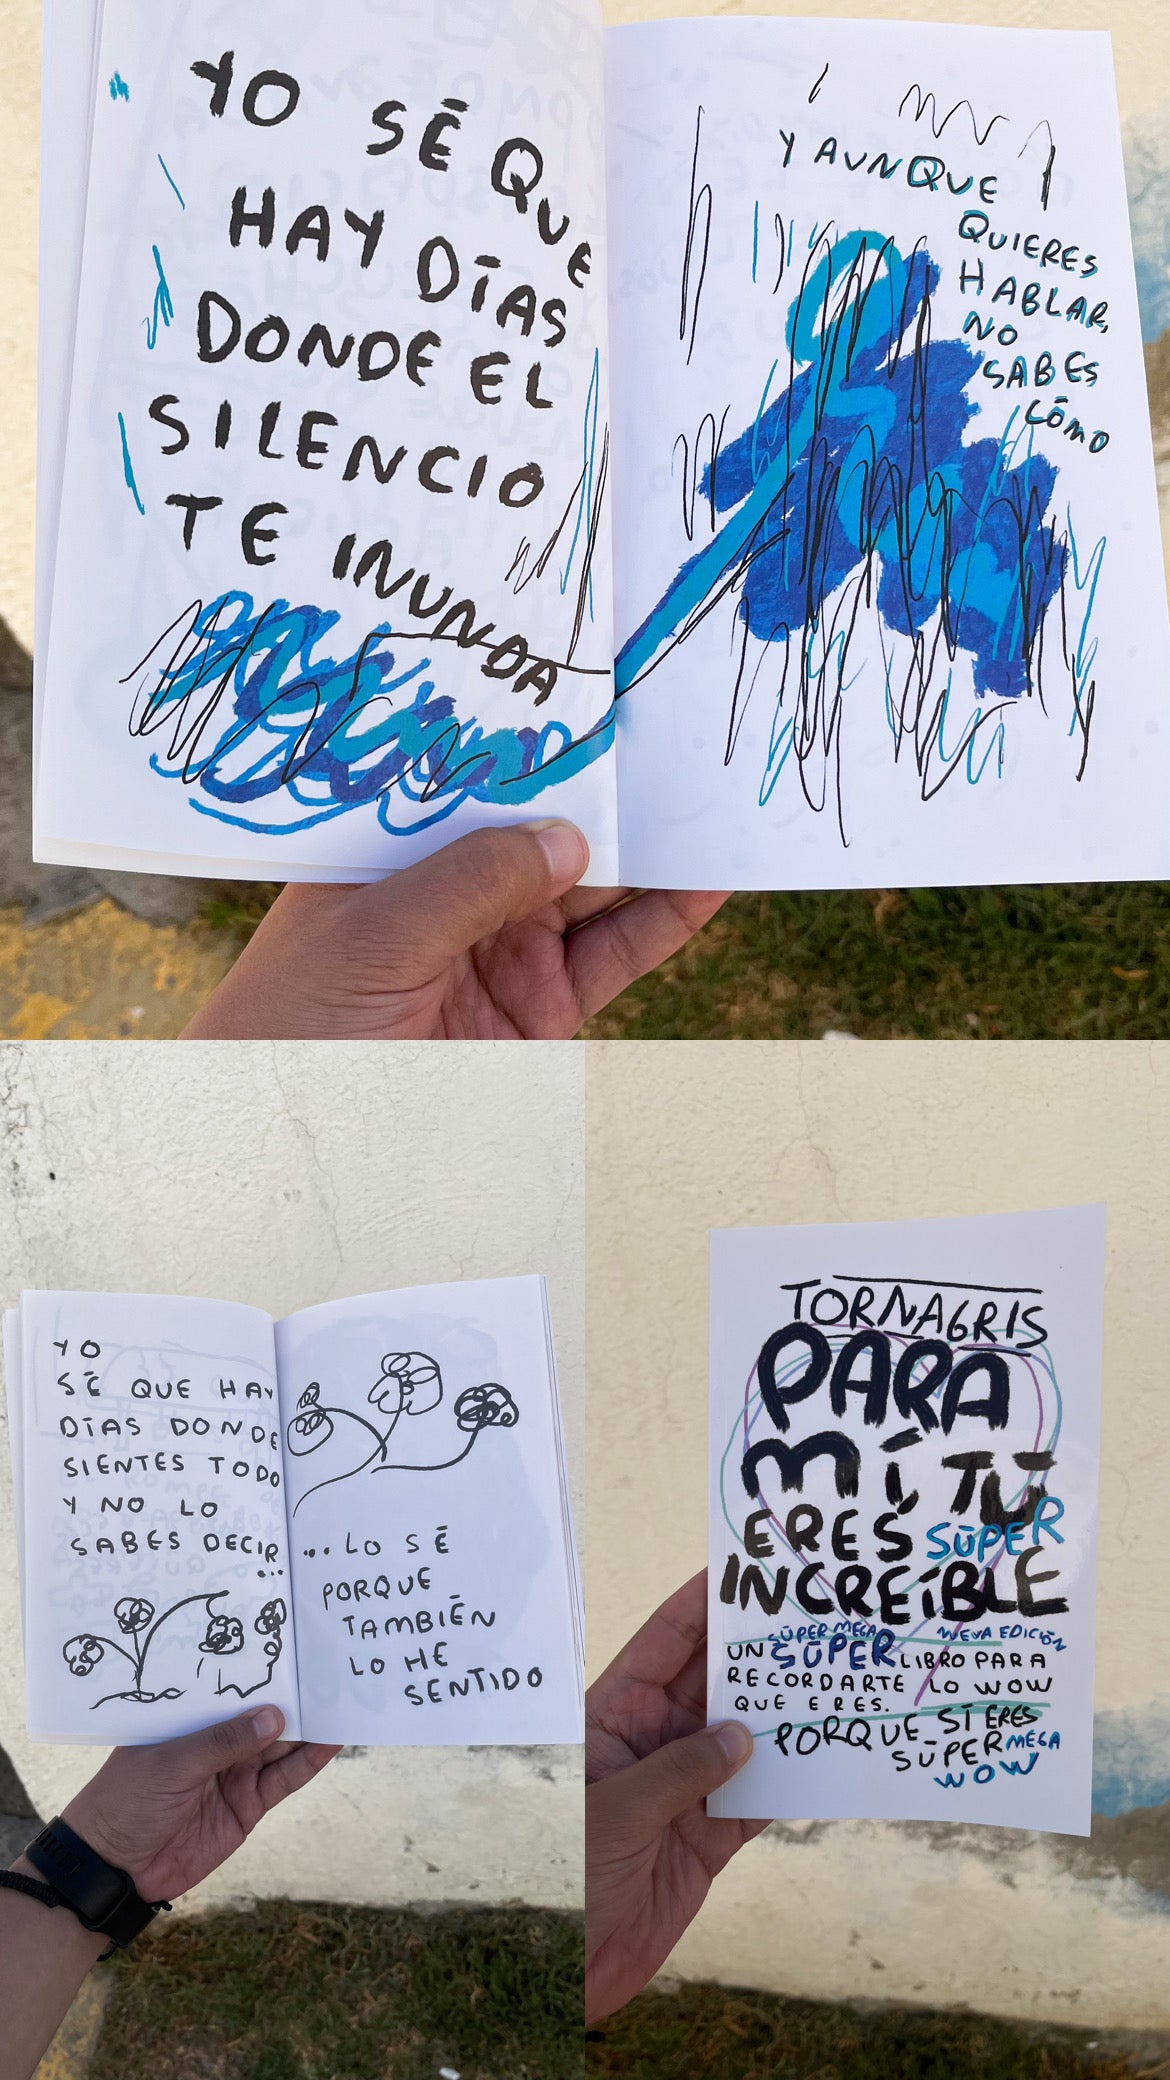 YO SÉ QUE
HAY DÍAS
DONDE EL
SILENCIO
TE INUNDA
Y AUNQUE
QUIERES
HABLAR,
NO
SABES
CÓMO
YO
SÉ QUE HAY
DÍAS DONDE
SIENTES TODO
Y NO LO
SABES DECIR
...
...LO SÉ
PORQUE
TAMBIÉN
LO HE
SENTIDO
TORNAGRIS
PARA
MÍ TÚ
ERES SÚPER
INCREÍBLE
SÚPER MEGA NUEVA EDICIÓN
UN SÚPER LIBRO PARA
RECORDARTE LO WOW
QUE ERES.
PORQUE SÍ ERES
SÚPER MEGA
WOW